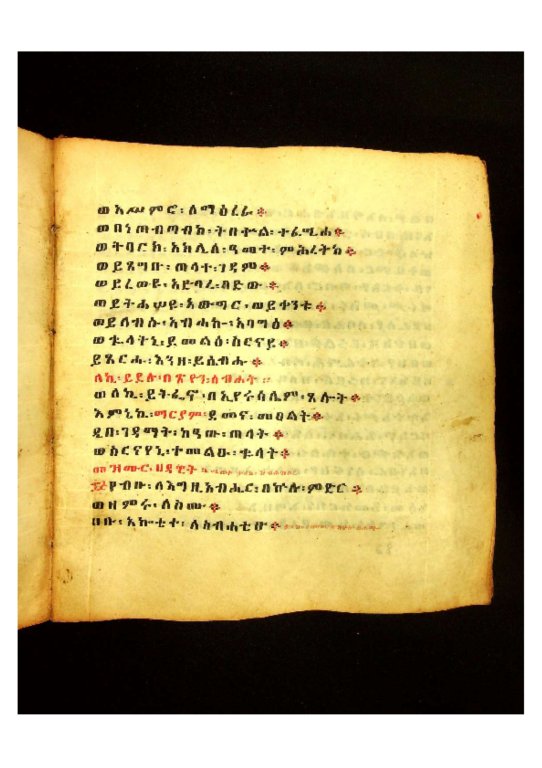 ወአሥምሮ፡ ለማዕረሬ ፨
ወበነጠብጣብከ፡ ትበቍል፡ ተፈሢሓ ፨
ወትባርክ፡ አክሊለ፡ ዓመተ፡ ምሕረትከ ፨
ወይጸግቡ፡ ጠላተ፡ ገዳም ፨
ወይረውዩ፡ አድባረ፡ በድው ፨
ወይትሐሠዩ፡ አውግር፡ ወይቀንቱ ፨
ወይለብሱ፡ አብሐኰ፡ አባግዕ ፨
ወቈላትኒ፡ ይመልዕ፡ ስርናየ ፨
ይጸርሑ፡ እንዘ፡ ይሴብሑ ፨
ለከ፡ ይደሉ፡ በጽዮን፡ ስብሐት ።
ወለኪ፡ ይትፌኖ፡ በኢየሩሳሌም፡ ጸሎት ፨
እምኒኪ፡ ማርያም፡ ደመና፡ መዐልት ፨
ዲበ፡ ገዳማት፡ ከዓው፡ ጠላት ፨
ወስርናየኒ፡ ተመልዑ፡ ቈላት ፨
መዝሙር፡ ዘዳዊት
፷፭ የብቡ፡ ለእግዚአብሔር፡ በኵሉ፡ ምድር ፨
ወዘምሩ፡ ለስሙ ፨
ሀቡ፡ አኰቴተ፡ ለስብሐቲሁ ፨